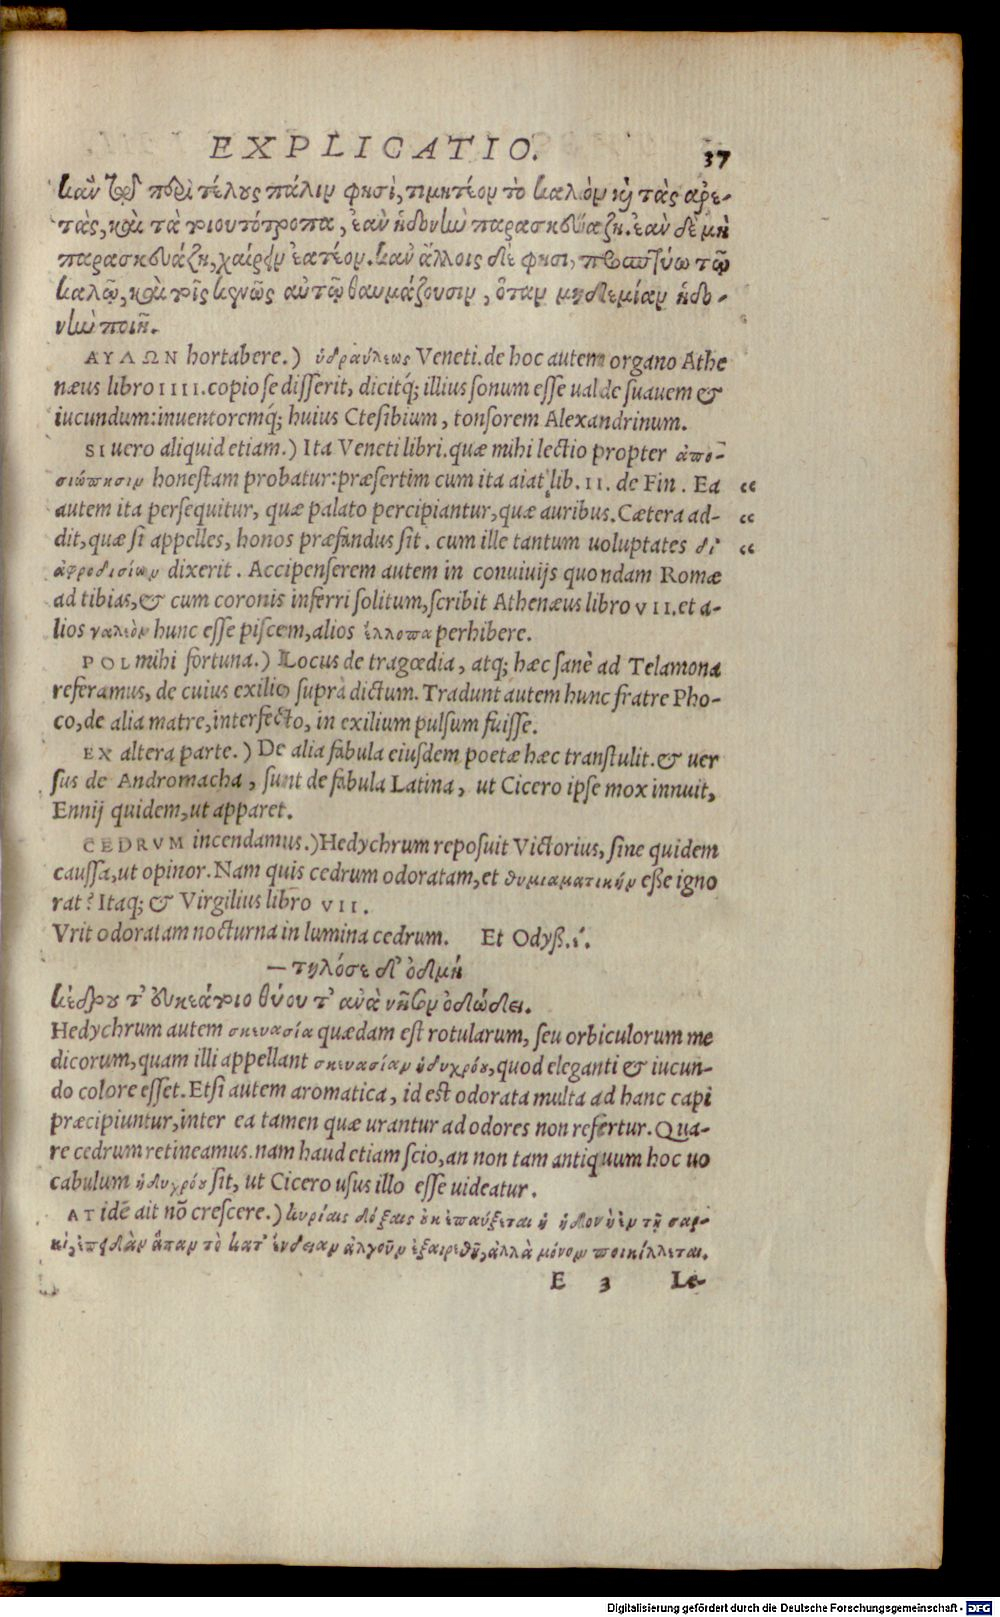 EXPLICATIO. 37
κἀν τῷ περὶ τέλους πάλιν φησὶ, τιμητέον τὸ καλὸν καὶ τὰς ἀρε-
τὰς, καὶ τὰ τοιουτότροπα, ἐὰν ἡδονὴν παρασκευάζῃ. ἐὰν δὲ μὴ
παρασκευάζῃ, χαίρειν ἐατέον. κἀν ἄλλοις δέ φησι, προσπτύω τῷ
καλῷ, καὶ τοῖς κενῶς αὐτῷ θαυμάζουσιν, ὅταν μηδεμίαν ἡδο-
νὴν ποιῇ.
ΑΥΛΩΝ hortabere.) ὑδραύλεως Veneti. de hoc autem organo Athe
næus libro IIII. copiose disserit, dicitq́; illius sonum esse ualde suauem &
iucundum: inuentoremq́; huius Ctesibium, tonsorem Alexandrinum.
SI uero aliquid etiam.) Ita Veneti libri. quæ mihi lectio propter ἀπο-
σιώπησιν honestam probatur: præsertim cum ita aiat lib. II. de Fin. Ea “
autem ita persequitur, quæ palato percipiantur, quæ auribus. Cætera ad- “
dit, quæ si appelles, honos præfandus sit. cum ille tantum uoluptates δι’ “
ἀφροδισίων dixerit. Accipenserem autem in conuiuijs quondam Romæ
ad tibias, & cum coronis inferri solitum, scribit Athenæus libro VII. et a-
lios γαλεὸν hunc esse piscem, alios ἔλλοπα perhibere.
POL mihi fortuna.) Locus de tragœdia, atq; hæc sanè ad Telamona
referamus, de cuius exilio suprà dictum. Tradunt autem hunc fratre Pho-
co, de alia matre, interfecto, in exilium pulsum fuisse.
EX altera parte.) De alia fabula eiusdem poetæ hæc transtulit. & uer
sus de Andromacha, sunt de fabula Latina, ut Cicero ipse mox innuit,
Ennij quidem, ut apparet.
CEDRVM incendamus.) Hedychrum reposuit Victorius, sine quidem
caussa, ut opinor. Nam quis cedrum odoratam, et θυμιαματικὴν eße igno
rat? Itaq; & Virgilius libro VII.
Vrit odoratam nocturna in lumina cedrum. Et Odyß. έ.
— τηλόσε δ’ ὀδμὴ
κέδρου τ’ εὐκεάτοιο θύου τ’ ἀνὰ νῆσον ὀδώδει.
Hedychrum autem σκευασία quædam est rotularum, seu orbiculorum me
dicorum, quam illi appellant σκευασίαν ἡδυχρόου, quod eleganti & iucun-
do colore esset. Etsi autem aromatica, id est odorata multa ad hanc capi
præcipiuntur, inter ea tamen quæ urantur ad odores non refertur. Qua-
re cedrum retineamus. nam haud etiam scio, an non tam antiquum hoc uo
cabulum ἡδυχρόου sit, ut Cicero usus illo esse uideatur.
AT idē ait nō crescere.) κυρίαις δόξαις οὐκ ἐπαύξεται ἡ ἡδονὴ ἐν τῇ σαρ-
κὶ, ἐπειδὰν ἅπαν τὸ κατ’ ἔνδειαν ἀλγοῦν ἐξαιρεθῇ, ἀλλὰ μόνον ποικίλλεται.
E 3 Le-
Digitalisierung gefördert durch die Deutsche Forschungsgemeinschaft - DFG